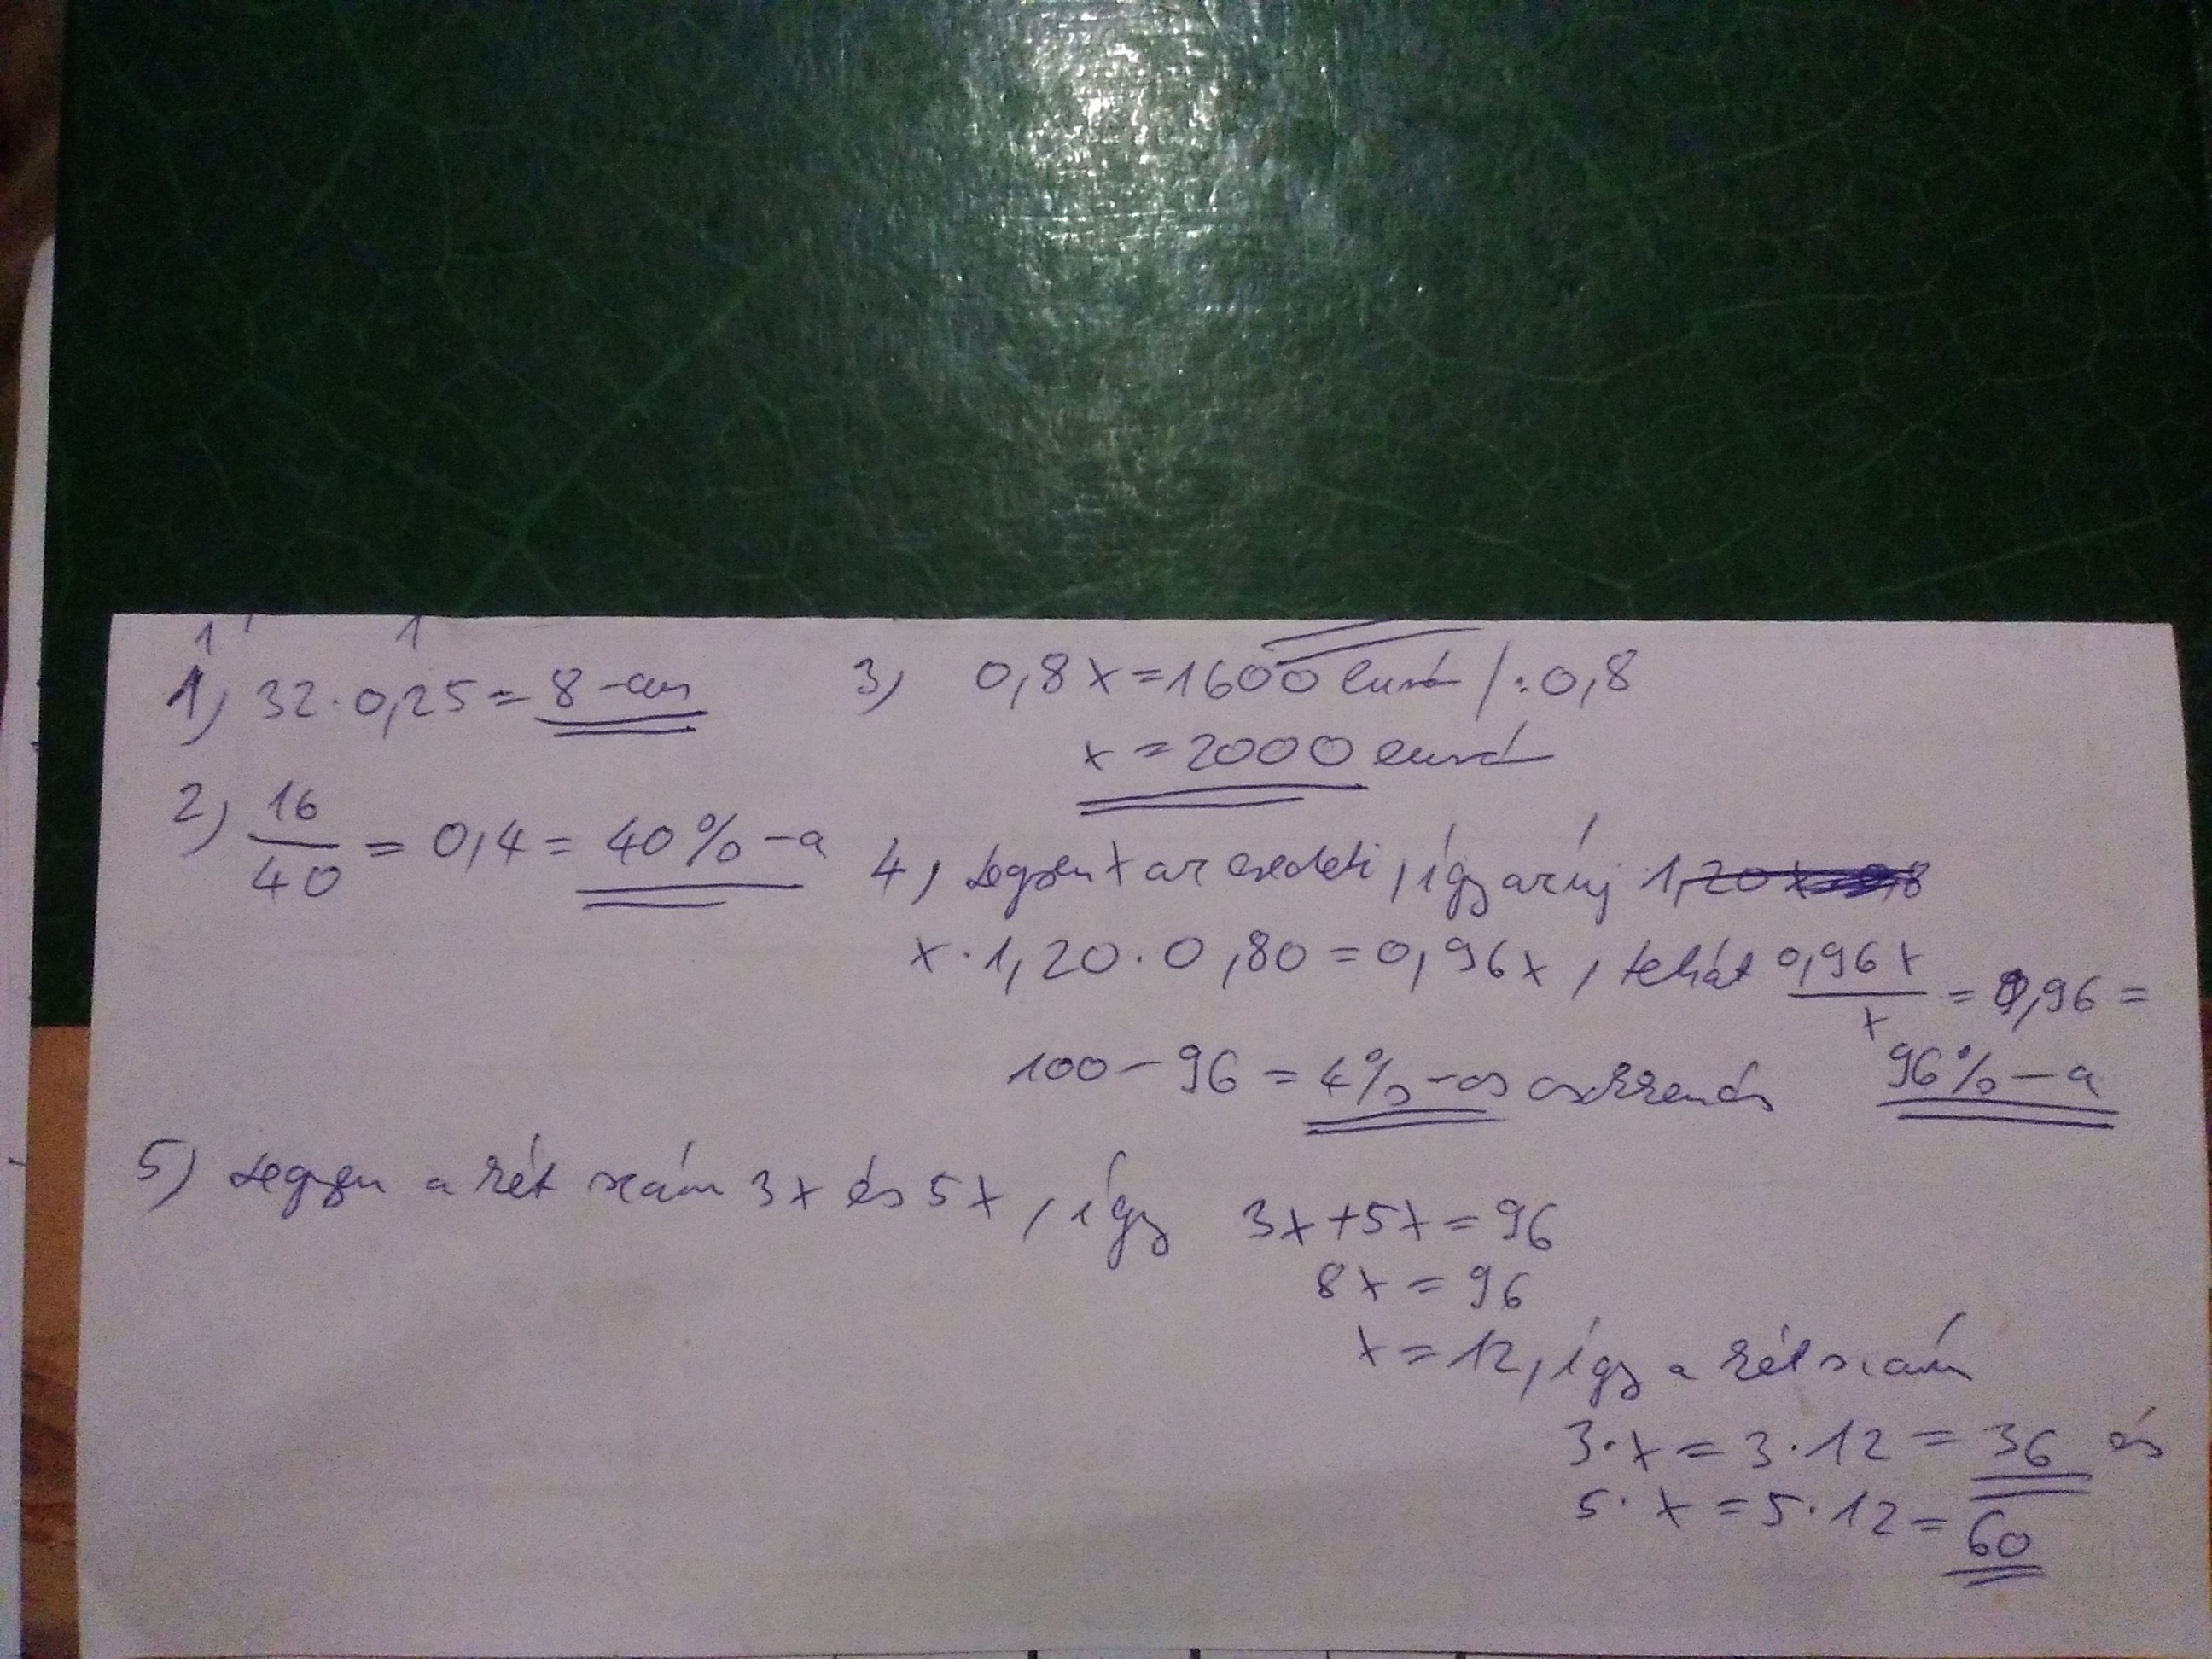 1) 32·0,25=8-an
2) 16/40 = 0,4 = 40%-a
3) 0,8x=1600 euró /:0,8
x=2000 euró
4, Legyen x az eredeti, így az új 1,20
x·1,20·0,80=0,96x, tehát 0,96x/x = 0,96 =
96%-a
100-96 = 4%-os csökkenés
5) Legyen a két szám 3x és 5x, így
3x+5x=96
8x=96
x=12, így a két szám
3·x=3·12=36 és
5·x=5·12=60